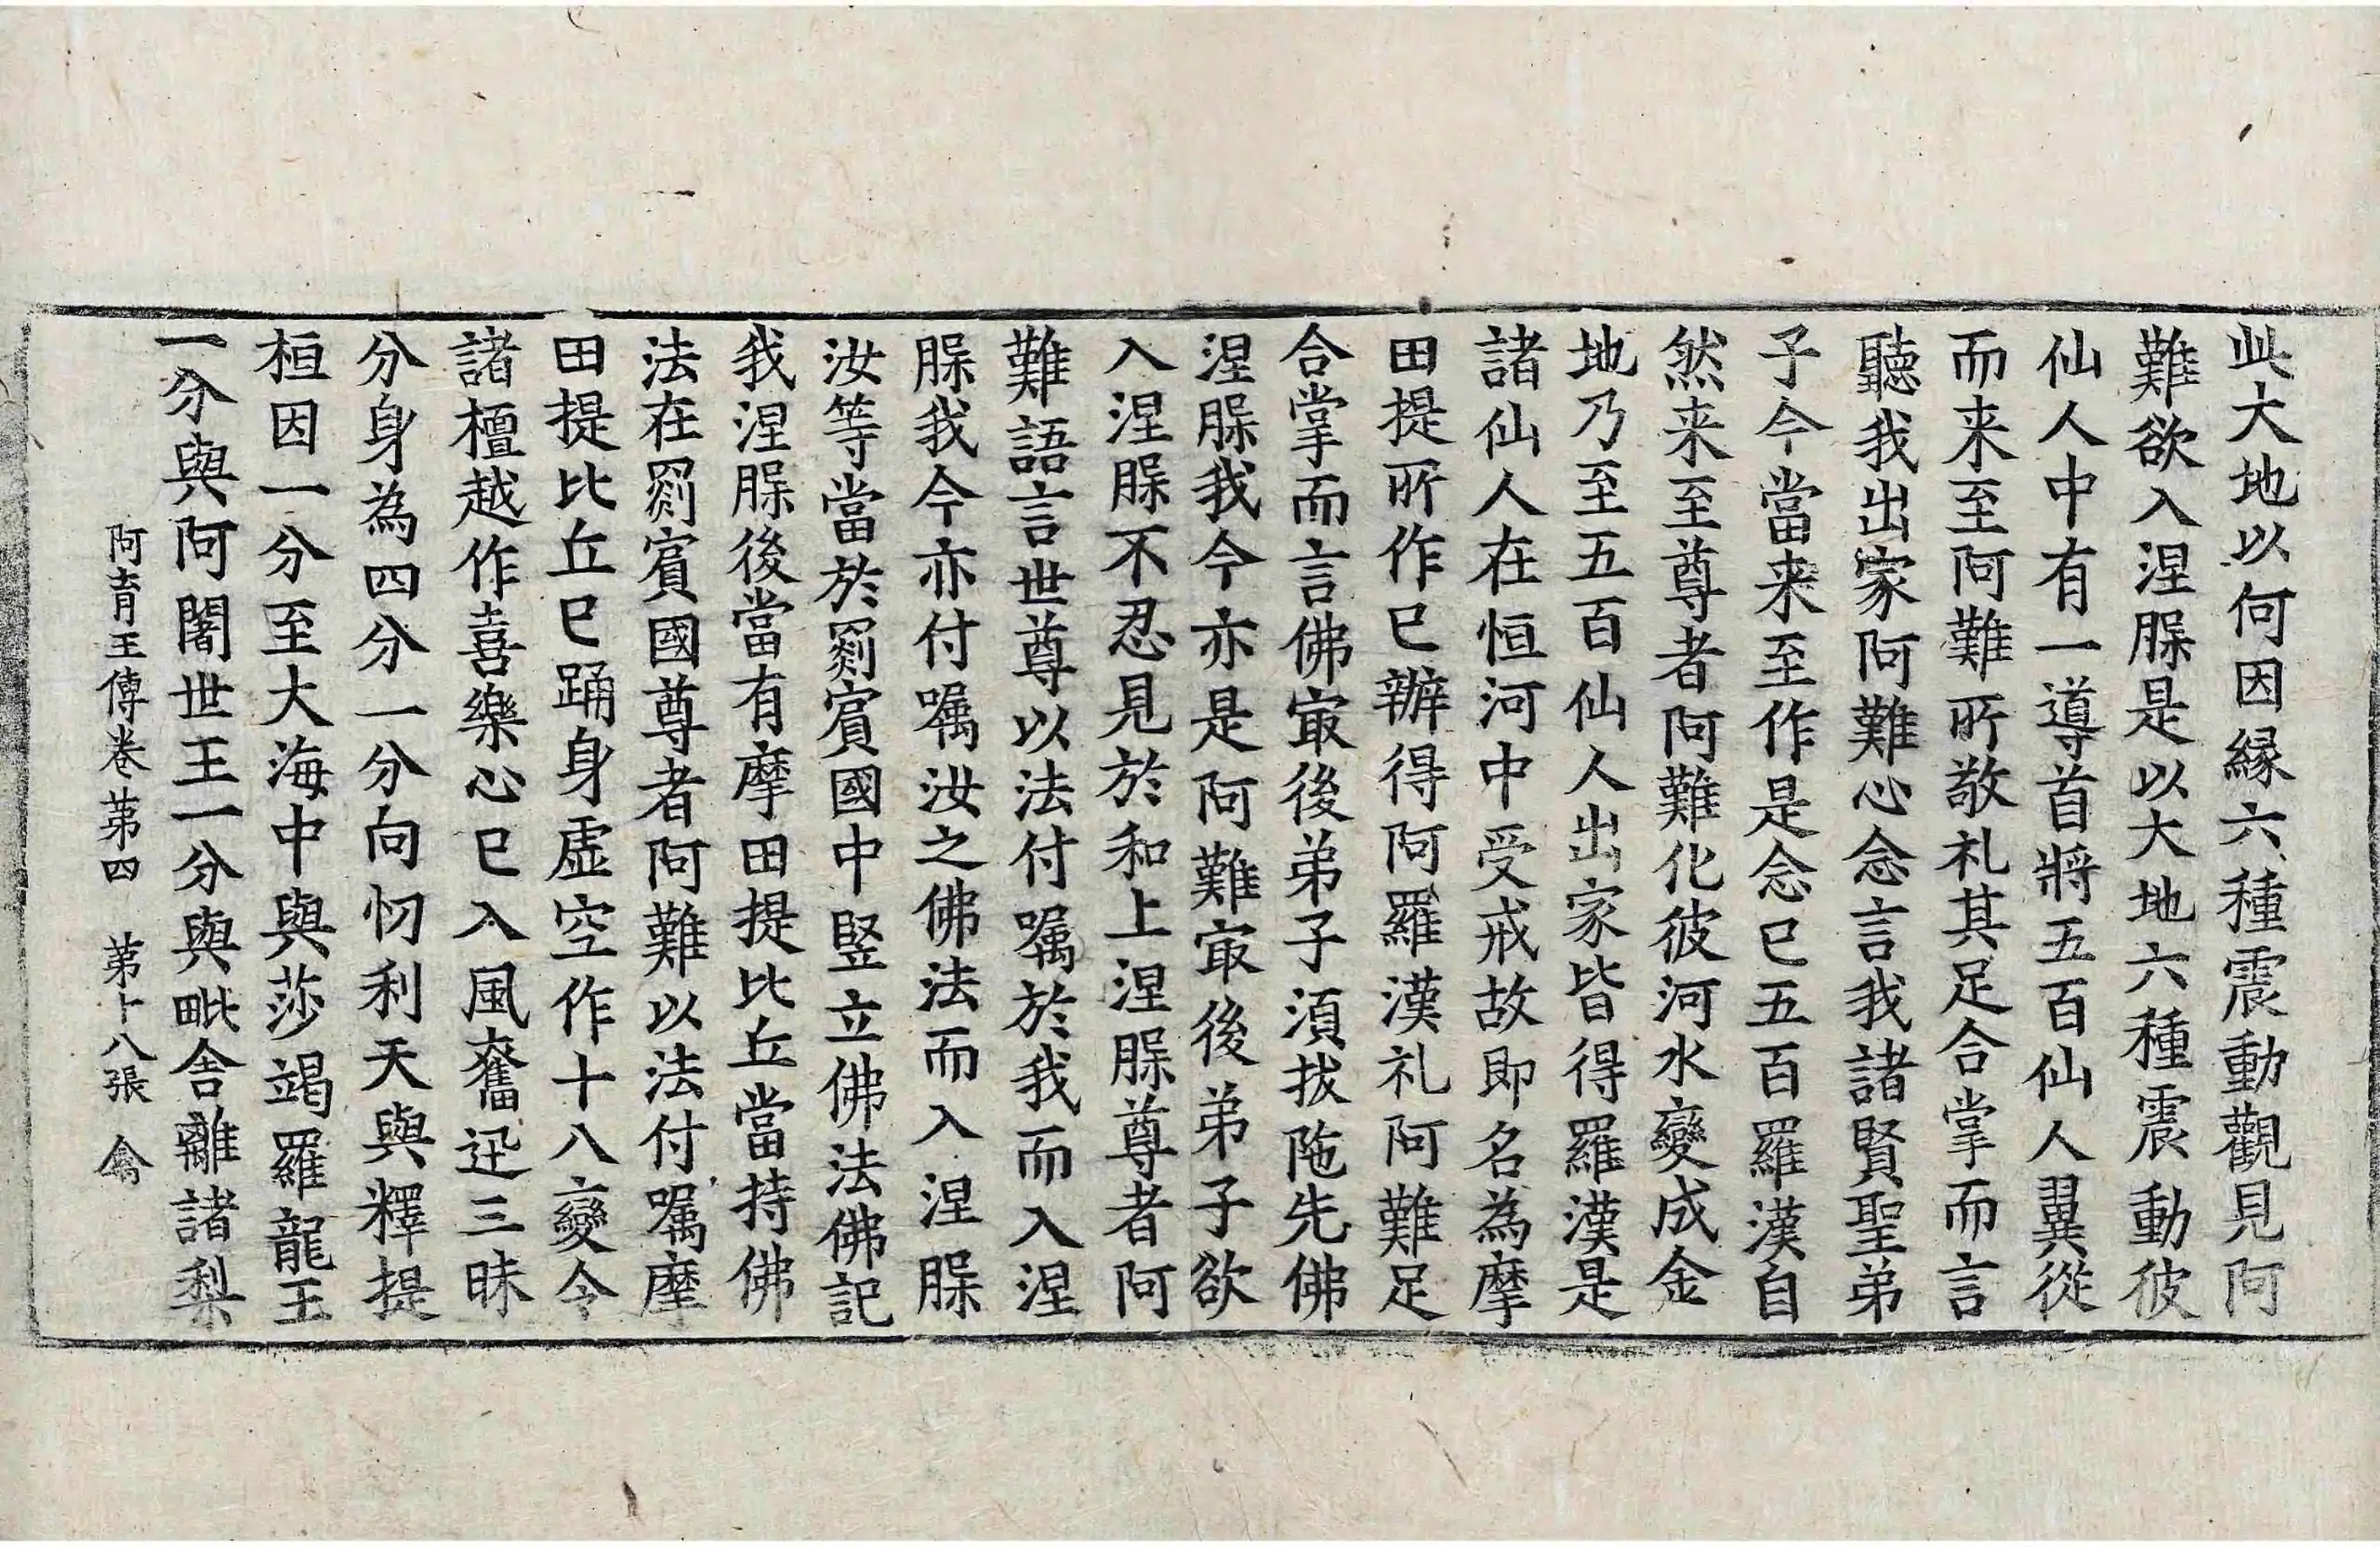 此大地以何因縁六種震動觀見阿
難欲入涅脲是以大地六種震動彼
仙人中有一導首將五百仙人翼從
而来至阿難所敬礼其足合掌而言
聽我出家阿難心念言我諸賢聖弟
子今當来至作是念已五百羅漢自
然来至尊者阿難化彼河水變成金
地乃至五百仙人出家皆得羅漢是
諸仙人在恒河中受戒故即名為摩
田提所作已辦得阿羅漢礼阿難足
合掌而言佛㝡後弟子湏拔陁先佛
涅脲我今亦是阿難㝡後弟子欲
入涅脲不忍見於和上涅脲尊者阿
難語言世尊以法付嘱於我而入涅
脲我今亦付嘱汝之佛法而入涅脲
汝等當於罽賓國中竪立佛法佛記
我涅脲後當有摩田提比丘當持佛
法在罽賓國尊者阿難以法付嘱摩
田提比丘已踊身虚空作十八變令
諸檀越作喜樂心已入風奮迅三昧
分身為四分一分向忉利天與釋提
桓因一分至大海中與莎竭羅龍王
一分與阿闍世王一分與毗舍離諸梨
阿育王傳卷第四 第十八張 禽